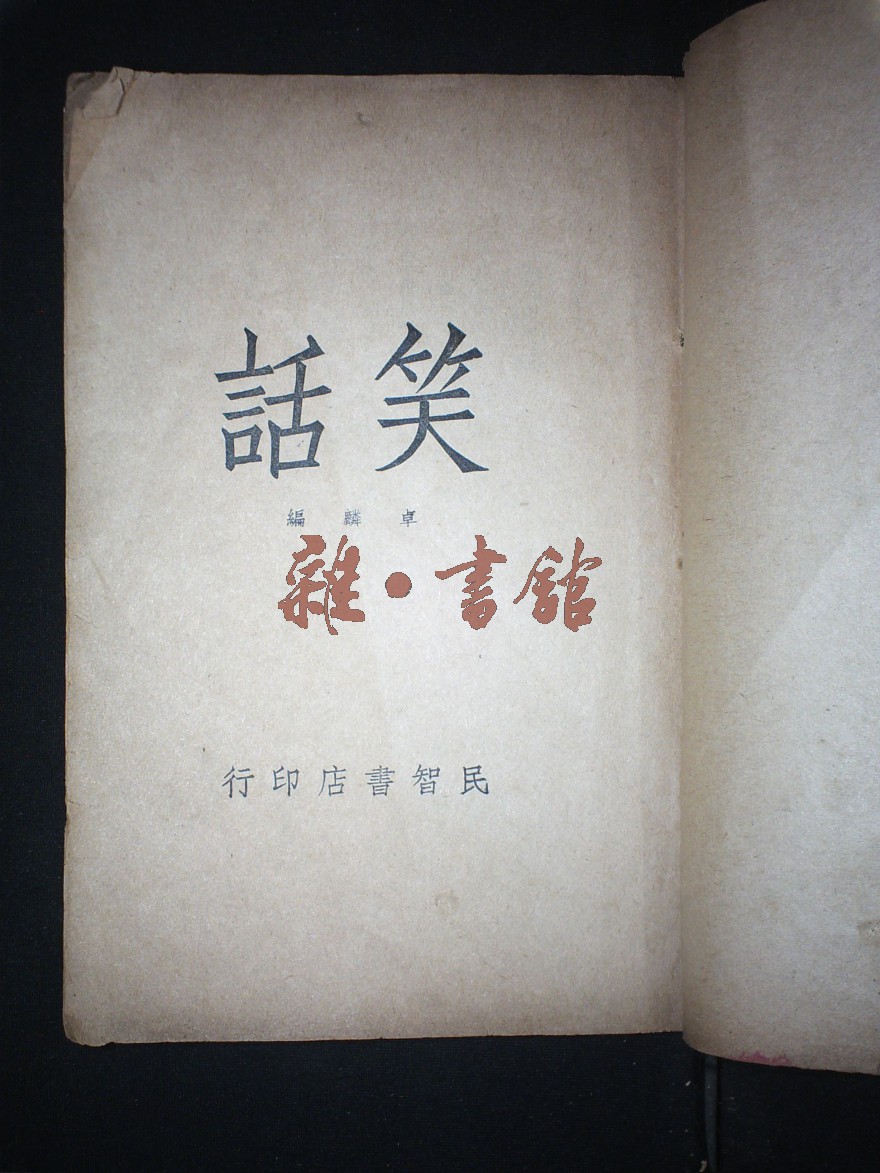 笑話
卓麟編
雜·書館
民智書店印行